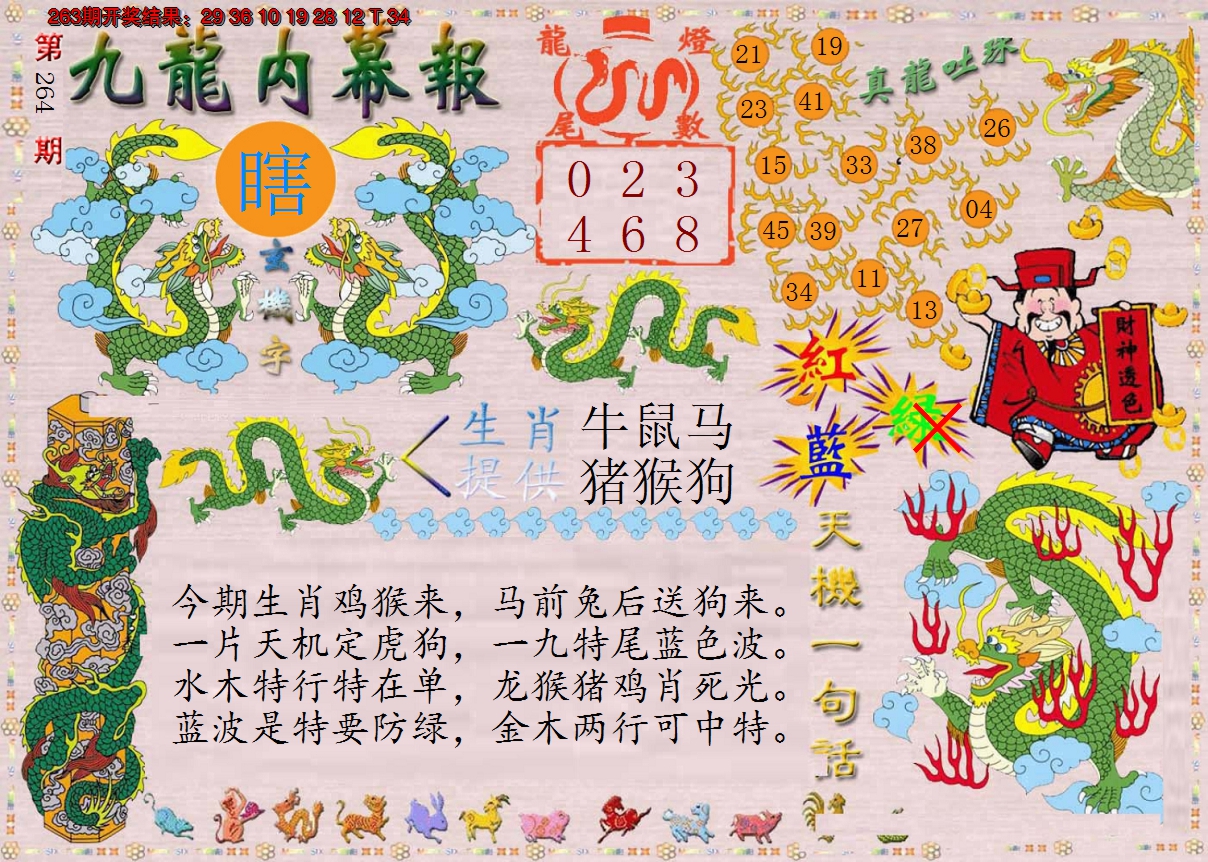 263期开奖结果：29 36 10 19 28 12 T 34
第264期
九龍内幕報
瞎
玄機字
龍燈
尾數
0 2 3
4 6 8
真龍吐珠
21 19
23 41
15 33 38 26
45 39 27 04
34 11 13
財神透色
紅
綠
藍
生肖提供
牛鼠马
猪猴狗
今期生肖鸡猴来，马前兔后送狗来。
一片天机定虎狗，一九特尾蓝色波。
水木特行特在单，龙猴猪鸡肖死光。
蓝波是特要防绿，金木两行可中特。
天機一句話